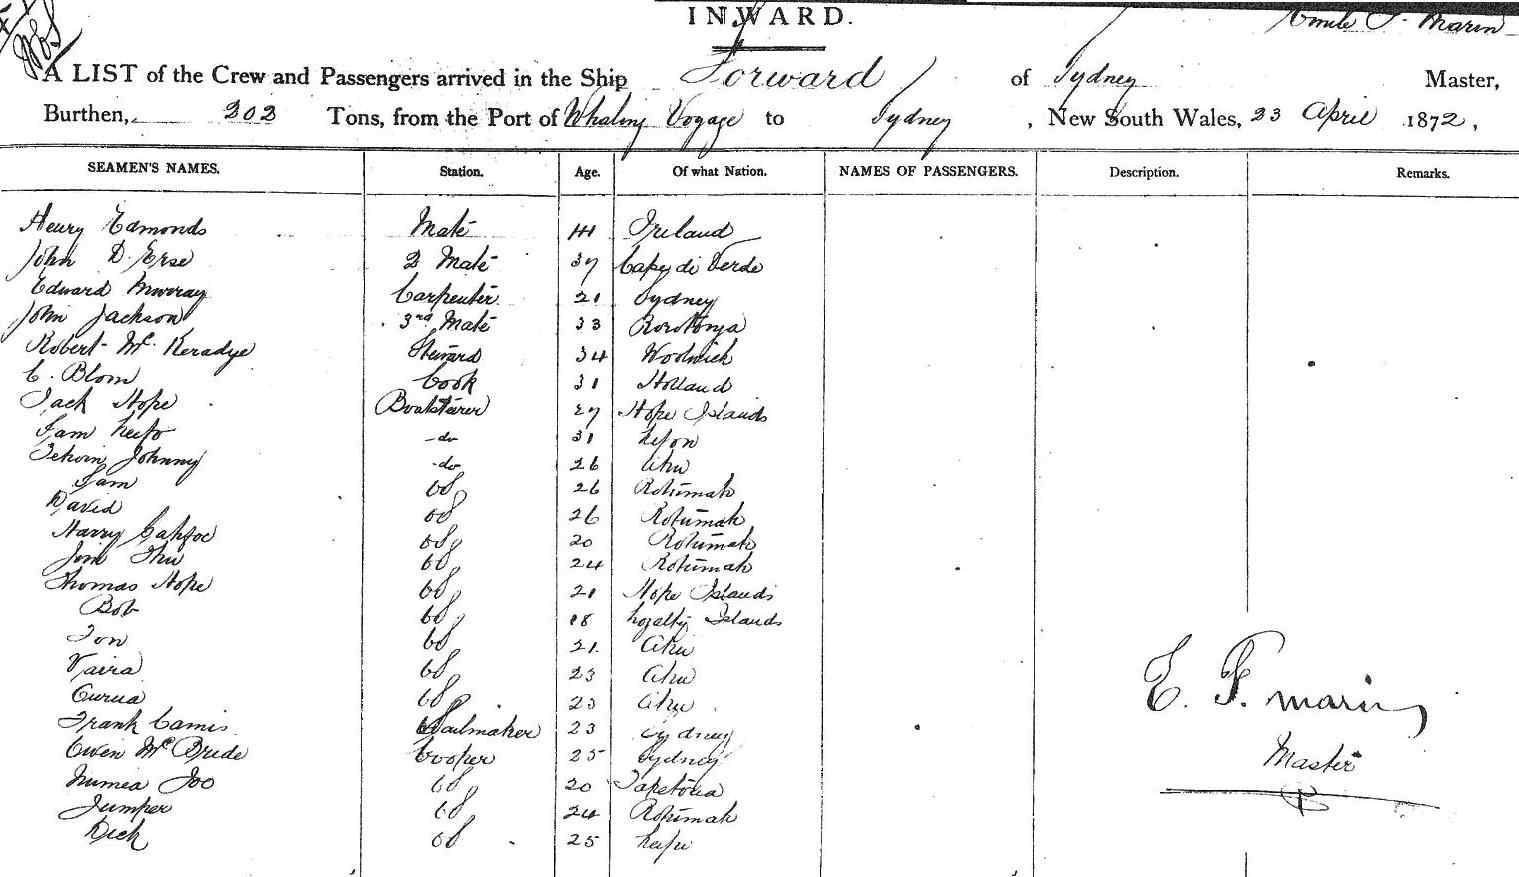 INWARD.
Emile F. Marin
A LIST of the Crew and Passengers arrived in the Ship Forward of Sydney Master,
Burthen, 202 Tons, from the Port of Whaling Voyage to Sydney, New South Wales, 23 April 1872,
SEAMEN'S NAMES. Station. Age. Of what Nation. NAMES OF PASSENGERS. Description. Remarks.
Henry Edmonds Mate 41 Ireland
John D. Erse 2 Mate 37 Cape di Verde
Edward Murray Carpenter 21 Sydney
John Jackson 3rd Mate 33 Rorotonga
Robert Mc. Keradye Steward 34 Woolwich
C. Blom Cook 31 Holland
Jack Hope Boatsteerer 27 Hope Islands
Sam -do 31
Johnny -do 26
Sam OS 26 Rotumah
David OS 26 Rotumah
Harry OS 20 Rotumah
Jim OS 24 Rotumah
Thomas Hope OS 21 Hope Islands
Bob OS 18 Loyalty Islands
Ton OS 21
Vaira OS 23
Curua OS 23
Frank Camis Sailmaker 23 Sydney
Owen Mc Bride Cooper 25 Sydney
Numea Joo OS 20
Jumper OS 24 Rotumah
Dick OS 25
E. F. Marin
Master